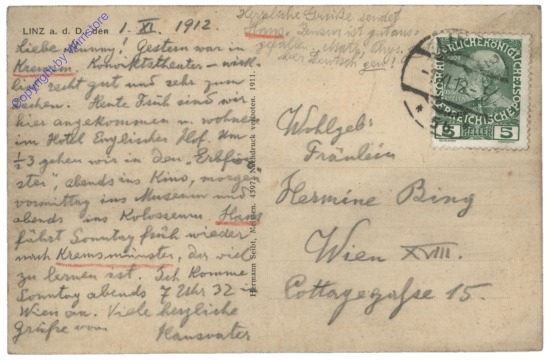 LINZ a. d. D., den 1. XI. 1912
Liebe Munny! Gestern war in
Kremsm Konviktstheater – wirk-
lich recht gut und sehr zum
Lachen. Heute Früh sind wir
hier angekommen u. wohnen
im Hotel Englischer Hof. Um
½3 gehen wir in den „Erbför-
ster", abends ins Kino, morgen
vormittag ins Museum und
abends ins Kolosseum. Hans
fährt Sonntag früh wieder
nach Kremsmünster, der viel
zu lernen ist. Ich komme
Sonntag abends 7 Uhr 32 in
Wien an. Viele herzliche
Grüße von
Hansvater
Herzliche Grüße sendet
Hans. Zensur ist gut aus-
gefallen, Math., Phys.
Deutsch gen.!
Hermann Seibt, Meissen. 4397. Nachdruck verboten. 1911.
Wohlgeb:
Fräulein
Hermine Bing
Wien XVIII.
Cottagegasse 15.
5 HELLER 5
Copyright by Wilmstore